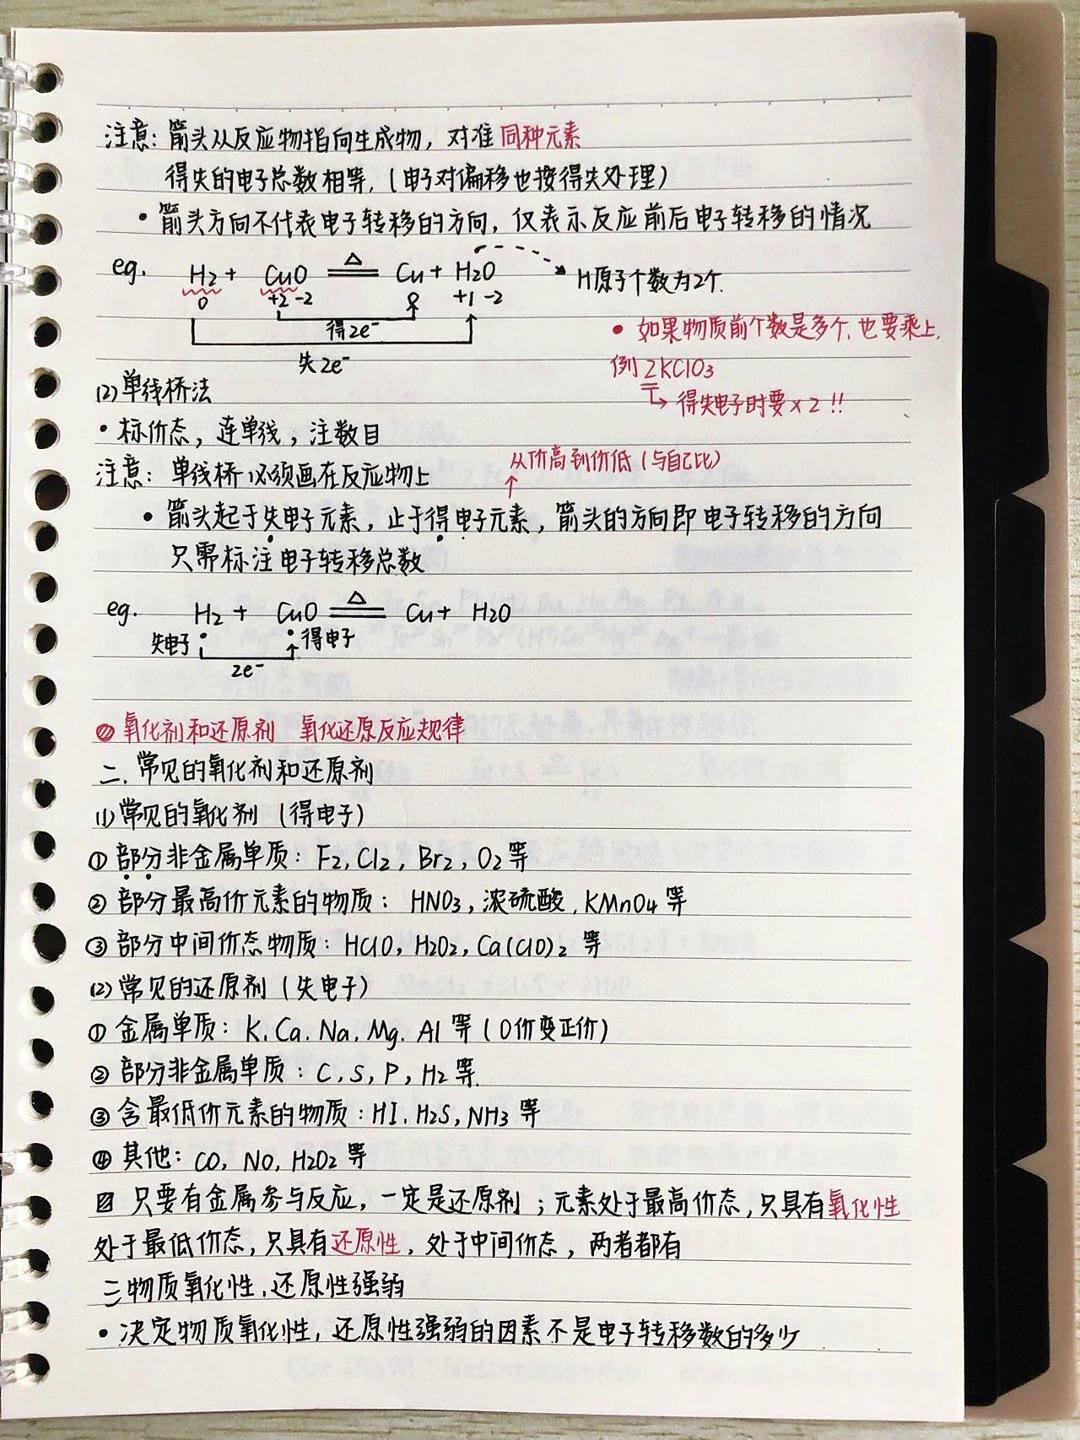 注意：箭头从反应物指向生成物，对准同种元素
得失的电子总数相等，（电子对偏移也按得失处理）
• 箭头方向不代表电子转移的方向，仅表示反应前后电子转移的情况
eg. H2 + CuO △ Cu + H2O
H原子个数为2个.
0 +2 -2 +1 -2
得2e⁻
• 如果物质前个数是多个，也要乘上.
失2e⁻
例 2KClO3
得失电子时要×2 !!
(2)单线桥法
• 标价态，连单线，注数目
从价高到价低（与自己比）
注意：单线桥必须画在反应物上
• 箭头起于失电子元素，止于得电子元素，箭头的方向即电子转移的方向
只需标注电子转移总数
eg. H2 + CuO △ Cu + H2O
失电子 得电子
2e⁻
氧化剂和还原剂 氧化还原反应规律
二.常见的氧化剂和还原剂
(1)常见的氧化剂（得电子）
① 部分非金属单质：F2，Cl2，Br2，O2等
② 部分最高价元素的物质：HNO3，浓硫酸，KMnO4等
③ 部分中间价态物质：HClO，H2O2，Ca(ClO)2 等
(2)常见的还原剂（失电子）
① 金属单质：K. Ca. Na. Mg. Al 等（0价变正价）
② 部分非金属单质：C，S，P，H2等.
③ 含最低价元素的物质：HI. H2S，NH3 等
④ 其他：CO，NO，H2O2等
只要有金属参与反应，一定是还原剂；元素处于最高价态，只具有氧化性
处于最低价态，只具有还原性，处于中间价态，两者都有
三物质氧化性，还原性强弱
• 决定物质氧化性，还原性强弱的因素不是电子转移数的多少